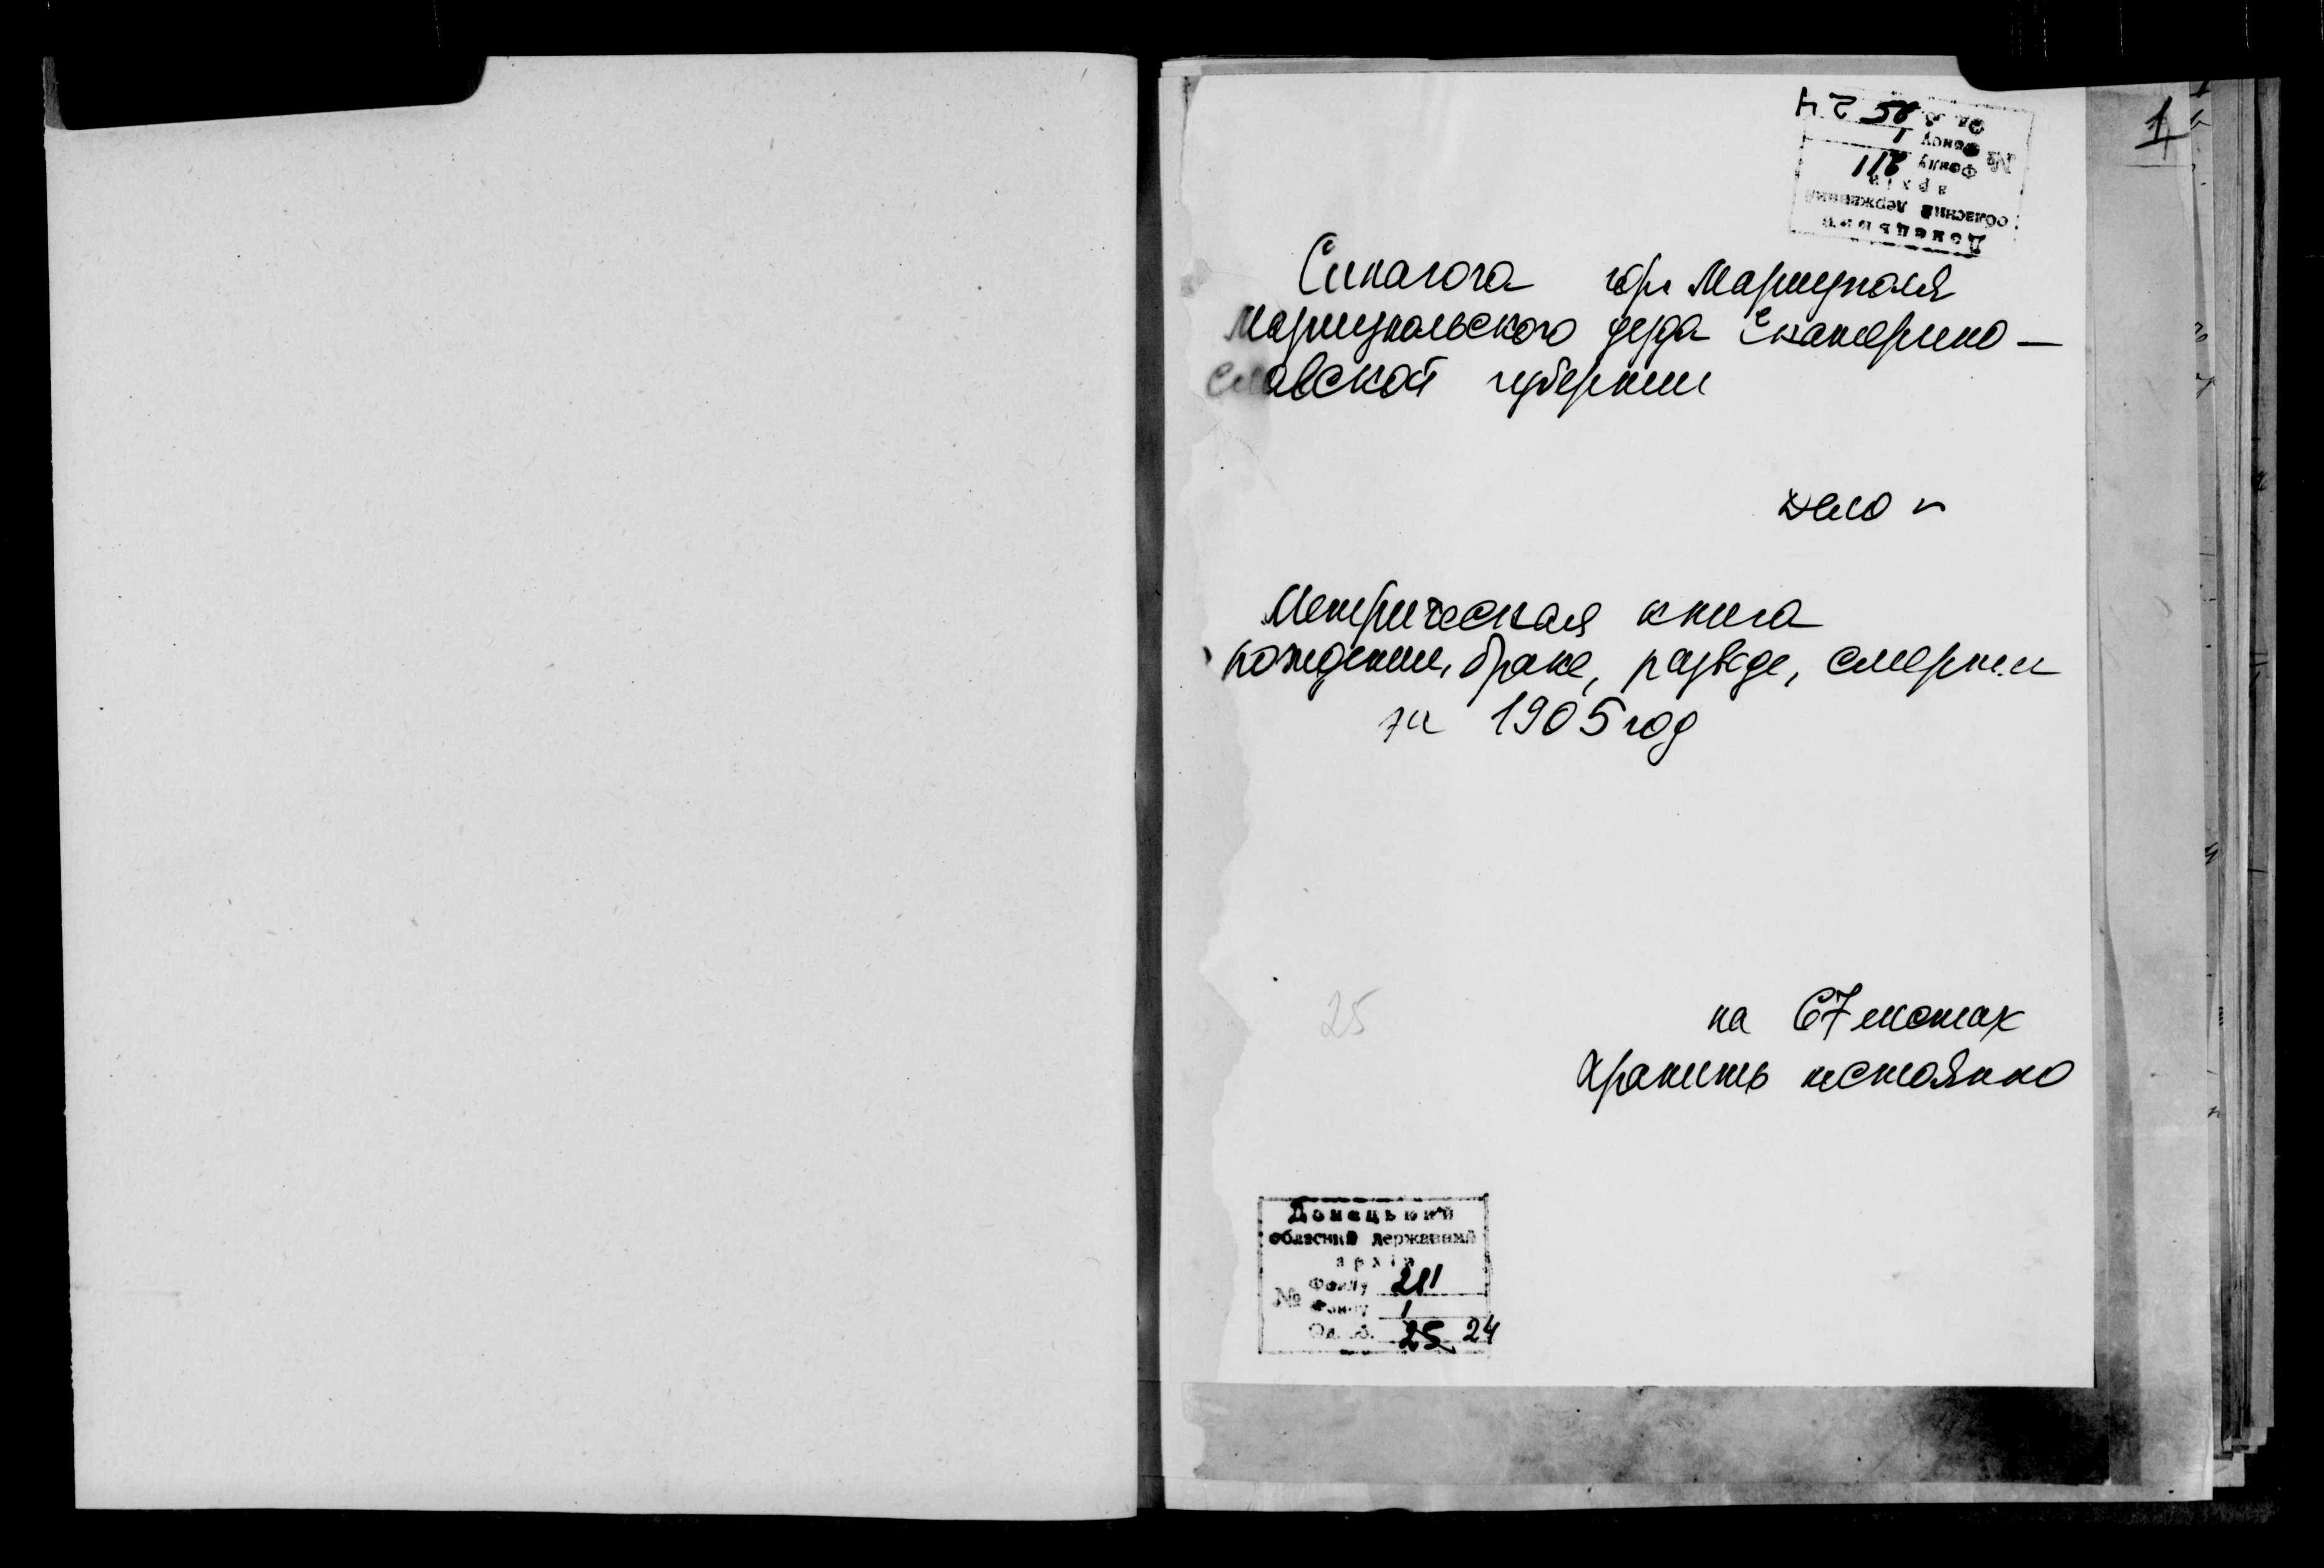 1
Донецький
обласний державний
архів
№ Фонду 211
Фонду 1
Од. зб. 25 24
Синагога гор Мариуполя
Мариупольского уезда Екатерино-
славской губернии
дело №
Метрическая книга
рождении, браке, разводе, смерти
за 1905 год
25
на 67 листах
Хранить постоянно
Донецький
обласний державний
архів
№ Фонду 211
Фонду 1
Од. зб. 25 24